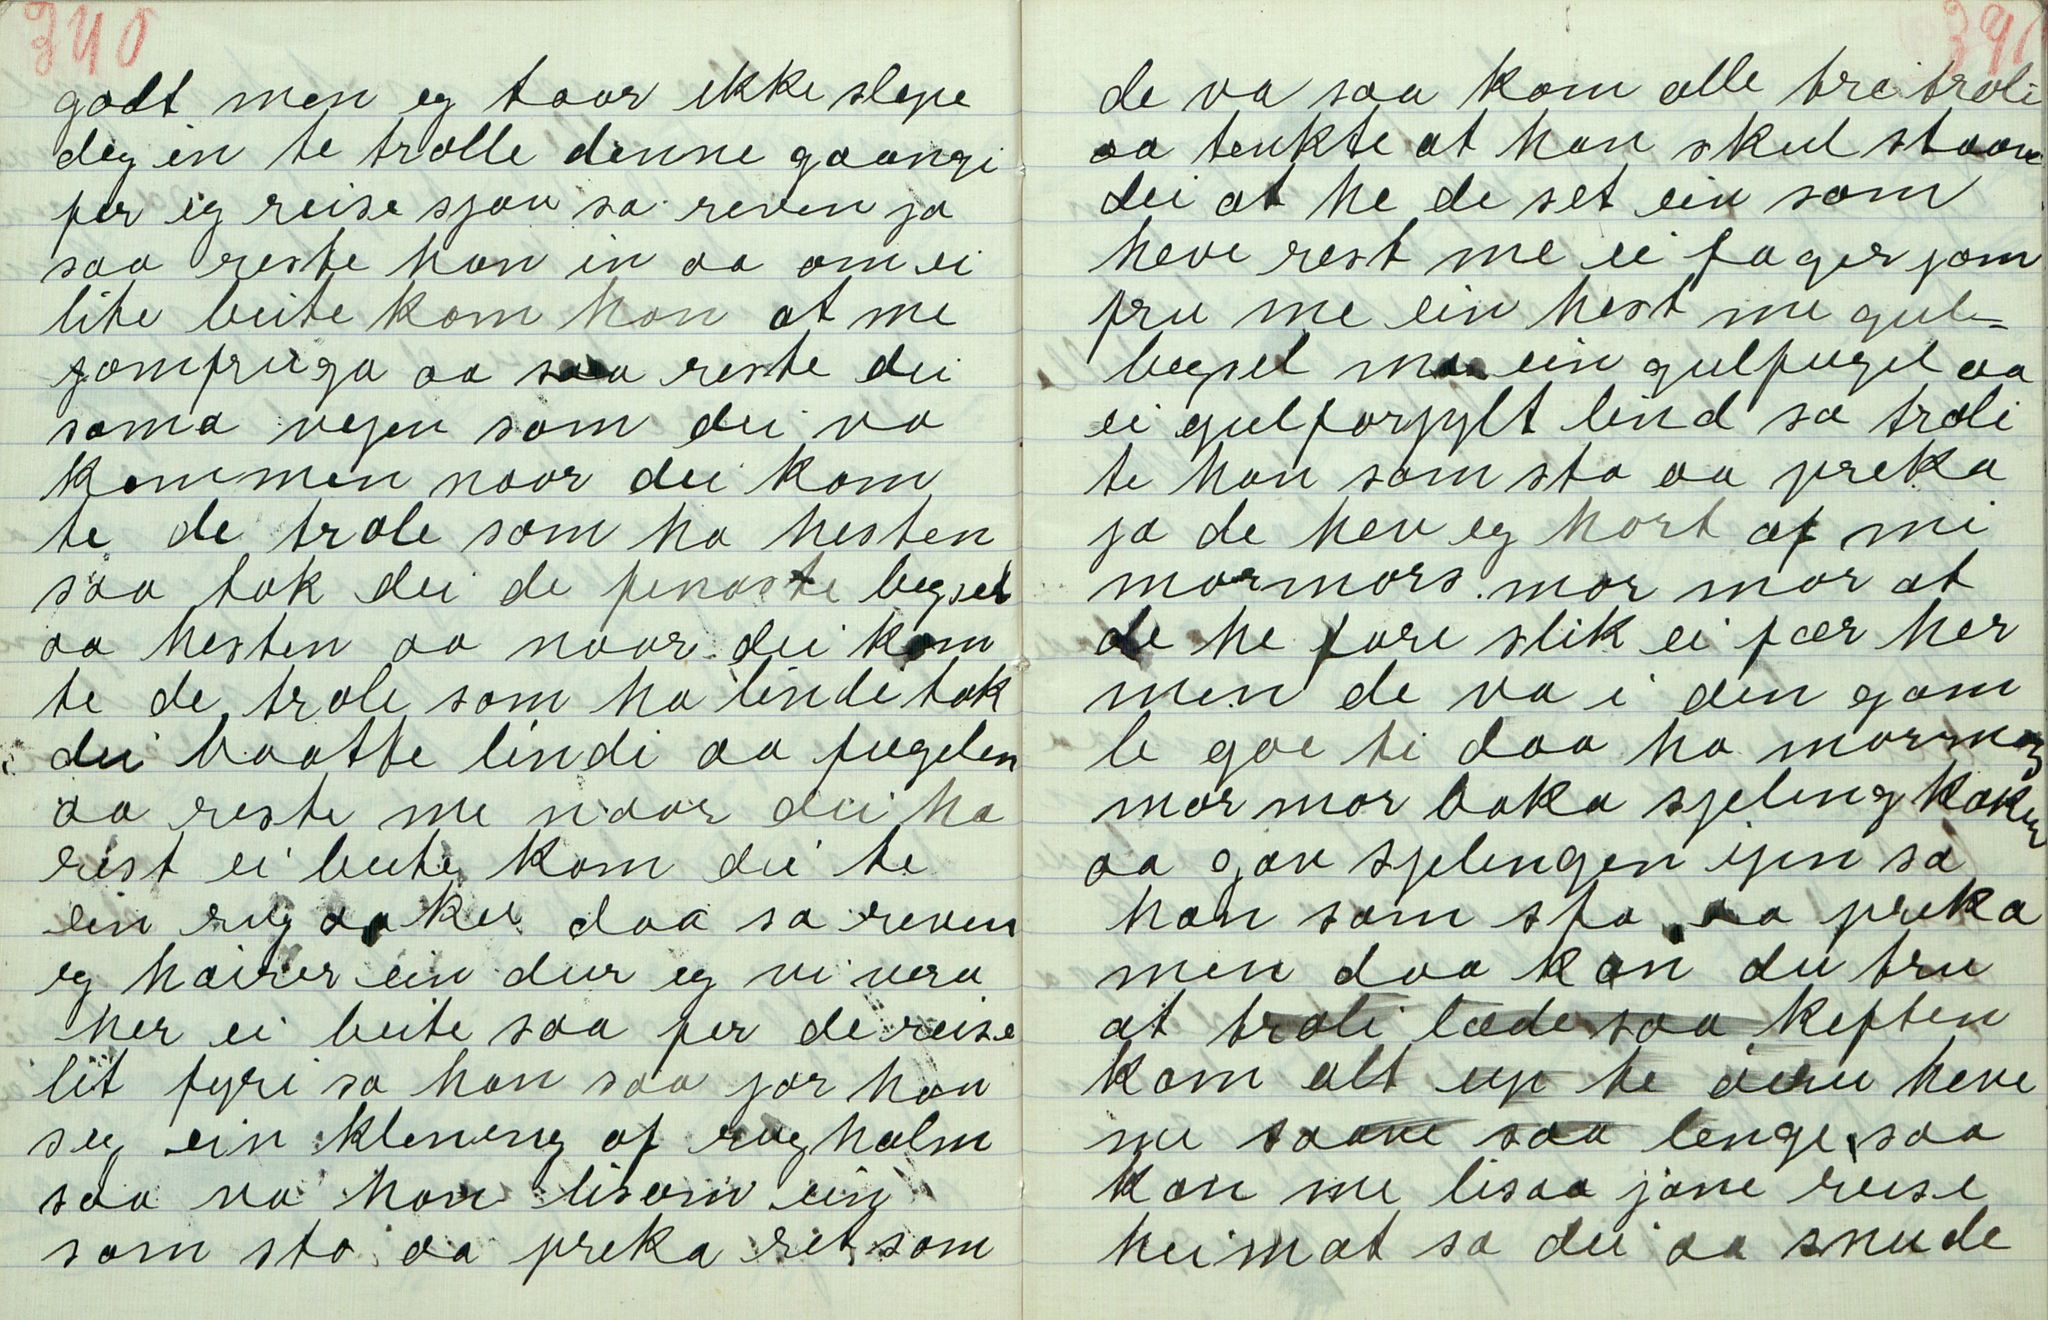 340
godt men eg toor ikke slepe
deg in te trolle denne goongi
fer eg reise sjøv sa reven ja
saa reste han in aa om ei
lite beite kom han at me
jomfruga aa saa reste dei
soma vegen som dei va
kommen naar dei kom
te de trole som ha hesten
saa tok dei de penaste begsel
aa hesten aa naar dei kom
te de trole som ha linde tok
dei baatte lindi aa fugelen
aa reste me naar dei ha
rest ei beite kom dei te
ein rugaaker daa sa reven
eg høirer ein dur eg vi vera
her ei beite saa fer de reise
lit fyri sa han saa jor han
seg ein klening af rug halm
saa va han lisom ein
som sto aa preka ret som
341
de va saa kom alle tre troli
aa tenkte at han skul staane
dei at he de set ein som
heve rest me ei fager jom
fru me ein hest me gul-
begsel me ein gulfugel aa
ei gulforgylt lind sa troli
te han som sto aa preka
ja de hev eg hort af mi
mormors mor mor at
de he fore slik ei fær her
men de va i den gam
le goe ti daa ha mormors
mor mor baka sjeling kaker
aa gav sjelingen ijen sa
han som sto aa preka
men daa kan du tru
at troli læde saa keften
kom alt up te øiru heve
me saave saa lenge saa
kan me lisaa jane reise
heimat sa dei aa snude